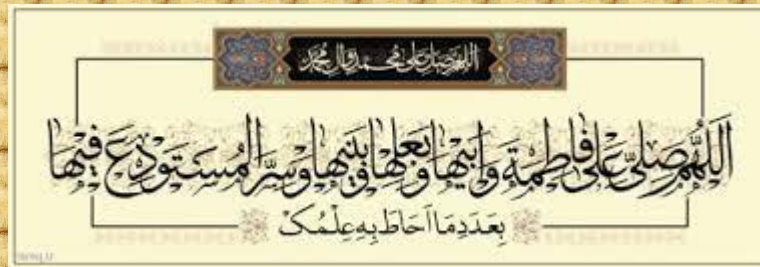 اللهم صل علی محمد وال محمد
اَللّهُمَّ صَلِّ عَلی فاطِمَةَ وَ اَبیها وَ بَعلِها وَ بَنیها وَ سِرِّ المُستَودَعِ فیها
بِعَدَدِ مَا اَحَاطَ بِهِ عِلمُکَ